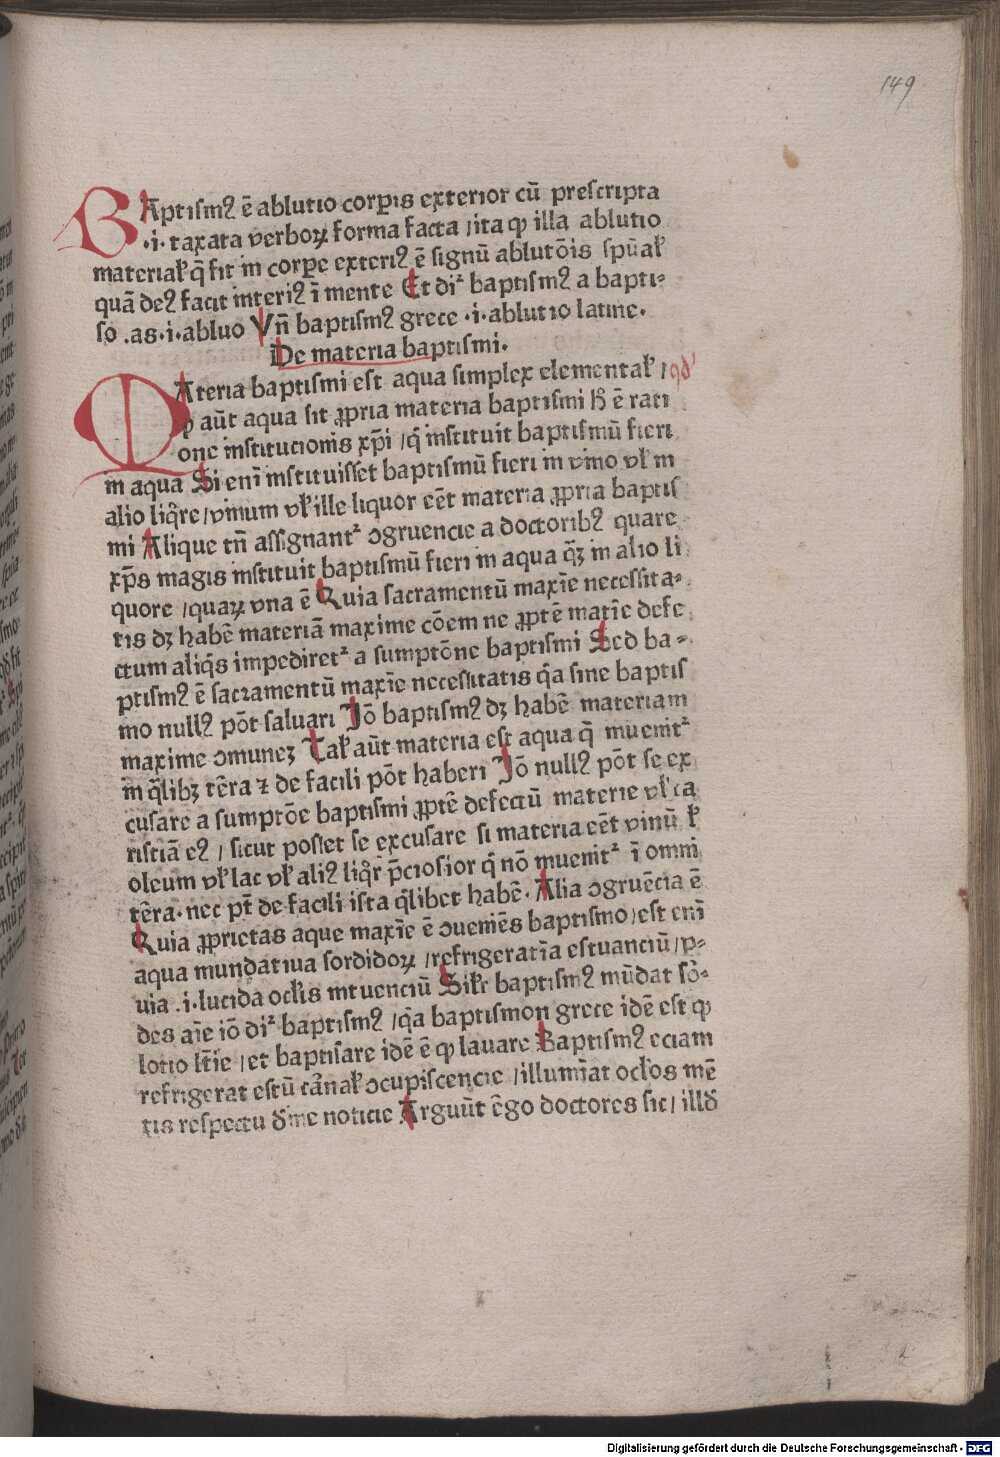 149
BAptismꝰ ē ablutio corꝑis exterior cū prescripta
·i· taxata verboꝝ forma facta / ita ꝙ illa ablutio
materialꝭ q̄ fit in corꝑe exteriꝰ ē signū ablutōis spūalꝭ
quā deꝰ facit interiꝰ ī mente Et diꝛ baptismꝰ a bapti⸗
so .as·i·abluo Vn̄ baptismꝰ grece ·i·ablutio latine·
De materia baptismi.
MAteria baptismi est aqua simplex elementalꝭ / qd'
ꝙ aūt aqua sit ꝓpria materia baptismi hͦ ē rati
one institucionis xp̄i / q̇ instituit baptismū fieri
in aqua Si enī instituisset baptismū fieri in vino vlꝭ in
alio liq̄re / vinum vlꝭ ille liquor eēt materia ꝓpria baptis
mi Alique tn̄ assignantꝛ ꝯgruencie a doctoribꝰ quare
xp̄s magis instituit baptismū fieri in aqua qꝫ̄ in alio li
quore / quaꝝ vna ē Quia sacramentū maxīe necessita⸗
tis dꝫ habē materiā maxime cōem ne ꝓptē matīe defe
ctum aliq̇s impediretꝛ a sumptōne baptismi Sed ba⸗
ptismꝰ ē sacramentū maxīe necessitatis q̇a sine baptis
mo nullꝰ pōt saluari Jō baptismꝰ dꝫ habē materiam
maxime ꝯmuneꝫ Talꝭ aūt materia est aqua q̄ inuenitꝛ
in q̄libꝫ tēra ⁊ de facili pōt haberi Jō nullꝰ pōt se ex
cusare a sumptōe baptismi ꝓptē defectū materie vlꝭ ca
ristiā eꝰ / sicut posset se excusare si materia eēt vinū lꝭ
oleum vlꝭ lac vlꝭ aliꝰ liq̄r p̄ciosior q̇ nō inuenitꝛ ī omni
tēra· nec pt̄ de facili ista q̄libet habē· Alia ꝯgruēcia ē
Quia ꝓprietas aque maxīe ē ꝯueniēs baptismo / est enī
aqua mundatiua sordidoꝝ / refrigeratīa estuanciū / ꝑ⸗
uia .i·lucida oclꝭis intuenciū Silꝭr baptismꝰ mūdat sō⸗
des aīe iō diꝛ baptismꝰ / q̇a baptismon grece idē est ꝙ
lotio lt̄ie / et baptisare idē ē ꝙ lauare Baptismꝰ eciam
refrigerat estū cānalꝭ ꝯcupiscencie / illumīat oclꝭos mē
tis respectu dīne noticie Arguūt ēgo doctores sic / illđ
Digitalisierung gefördert durch die Deutsche Forschungsgemeinschaft - DFG